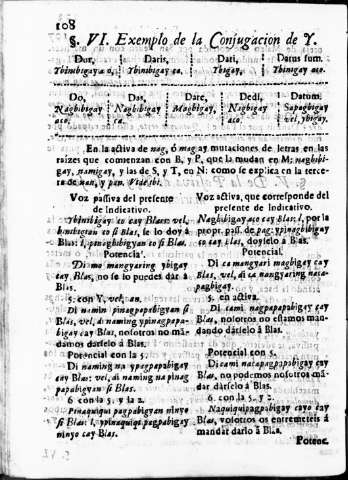 108
§. VI. Exemplo de la Conjugacion de Y.
Dor, Daris, Dari, Datus sum.
Ybinibigay aco, Ybinibigay ca. Ybigay, Ybinigay aco.
Do, Das, Dare, Dedi, Datum.
Nagbibigay Nagbibigay Magbigay, Nagbigay Sapagbigay
aco. ca. aco. vel, ybigay.
En la activa de nag, ó mag ay mutaciones de letras en las
raizes que comienzan con B, y P, que la mudan en M; naghibi-
gay, namigay, y las de S, y T, en N: como se explica en la terce-
ra de nan, y pan. Vide ibi.
Voz passiva del presente
de Indicativo.
Ybinibigay co cay Blas: vel,
binibigyan co si Blas, se lo doy à
Blas: l, pinagbibigyan co si Blas.
Potencia.
Di mo mangyaring ybigay
cay Blas, no se lo puedes dar à
Blas.
5. con Y, vel, an.
Di namin pinagpapabigyan si
Blas, vel, di naming ypinagpapa-
bigay cay Blas, nosotros no mã-
damos darselo à Blas.
Potencial con la 5.
Di naming na ypagpapabigay
cay Blas: vel, di naming na pinag
papabigyan si Blas.
6 con la 5. y la 2.
Pinaquiqui pagpabigyan ninyo
si Blas: l, ypinaquiqui pagpabigay
ninyo cay Blas.
Voz activa, que corresponde del
presente de Indicativo.
Nagbibigay aco cay Blas: l, por la
propr. pass. de pag: ypinagbibigay
co cay Blas, doyselo à Blas.
Potencial.
Di ca mangyari magbigay cay
Blas, vel, di ca nangyaring naca-
pagbigay.
5. en activa.
Di cami nagpapabigay cay
Blas, nosotros no estamos man-
dando darselo à Blas.
Potencial con 5.
Di cami nacapagpabigay cay
Blas, no podemos nosotros mã-
dar darselo à Blas.
6. con la 5. y 2.
Naquiquipagpabigay cayo cay
Blas, vosotros os entremeteis á
mandar darlo à Blas.
Potenc.